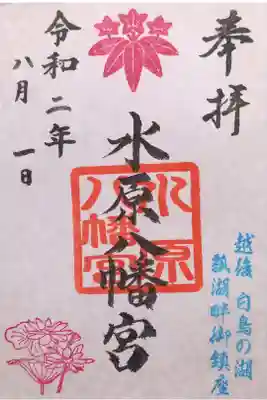 奉拝
水原八幡宮
水原
八幡宮
令和二年
八月一日
越後 白鳥の湖
瓢湖畔御鎮座